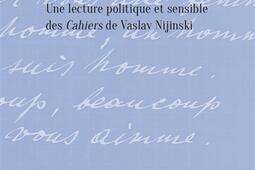 Une lecture politique et sensible
des Cahiers de Vaslav Nijinski
homme, un homme
suis homme.
beaucoup
vous aimme.